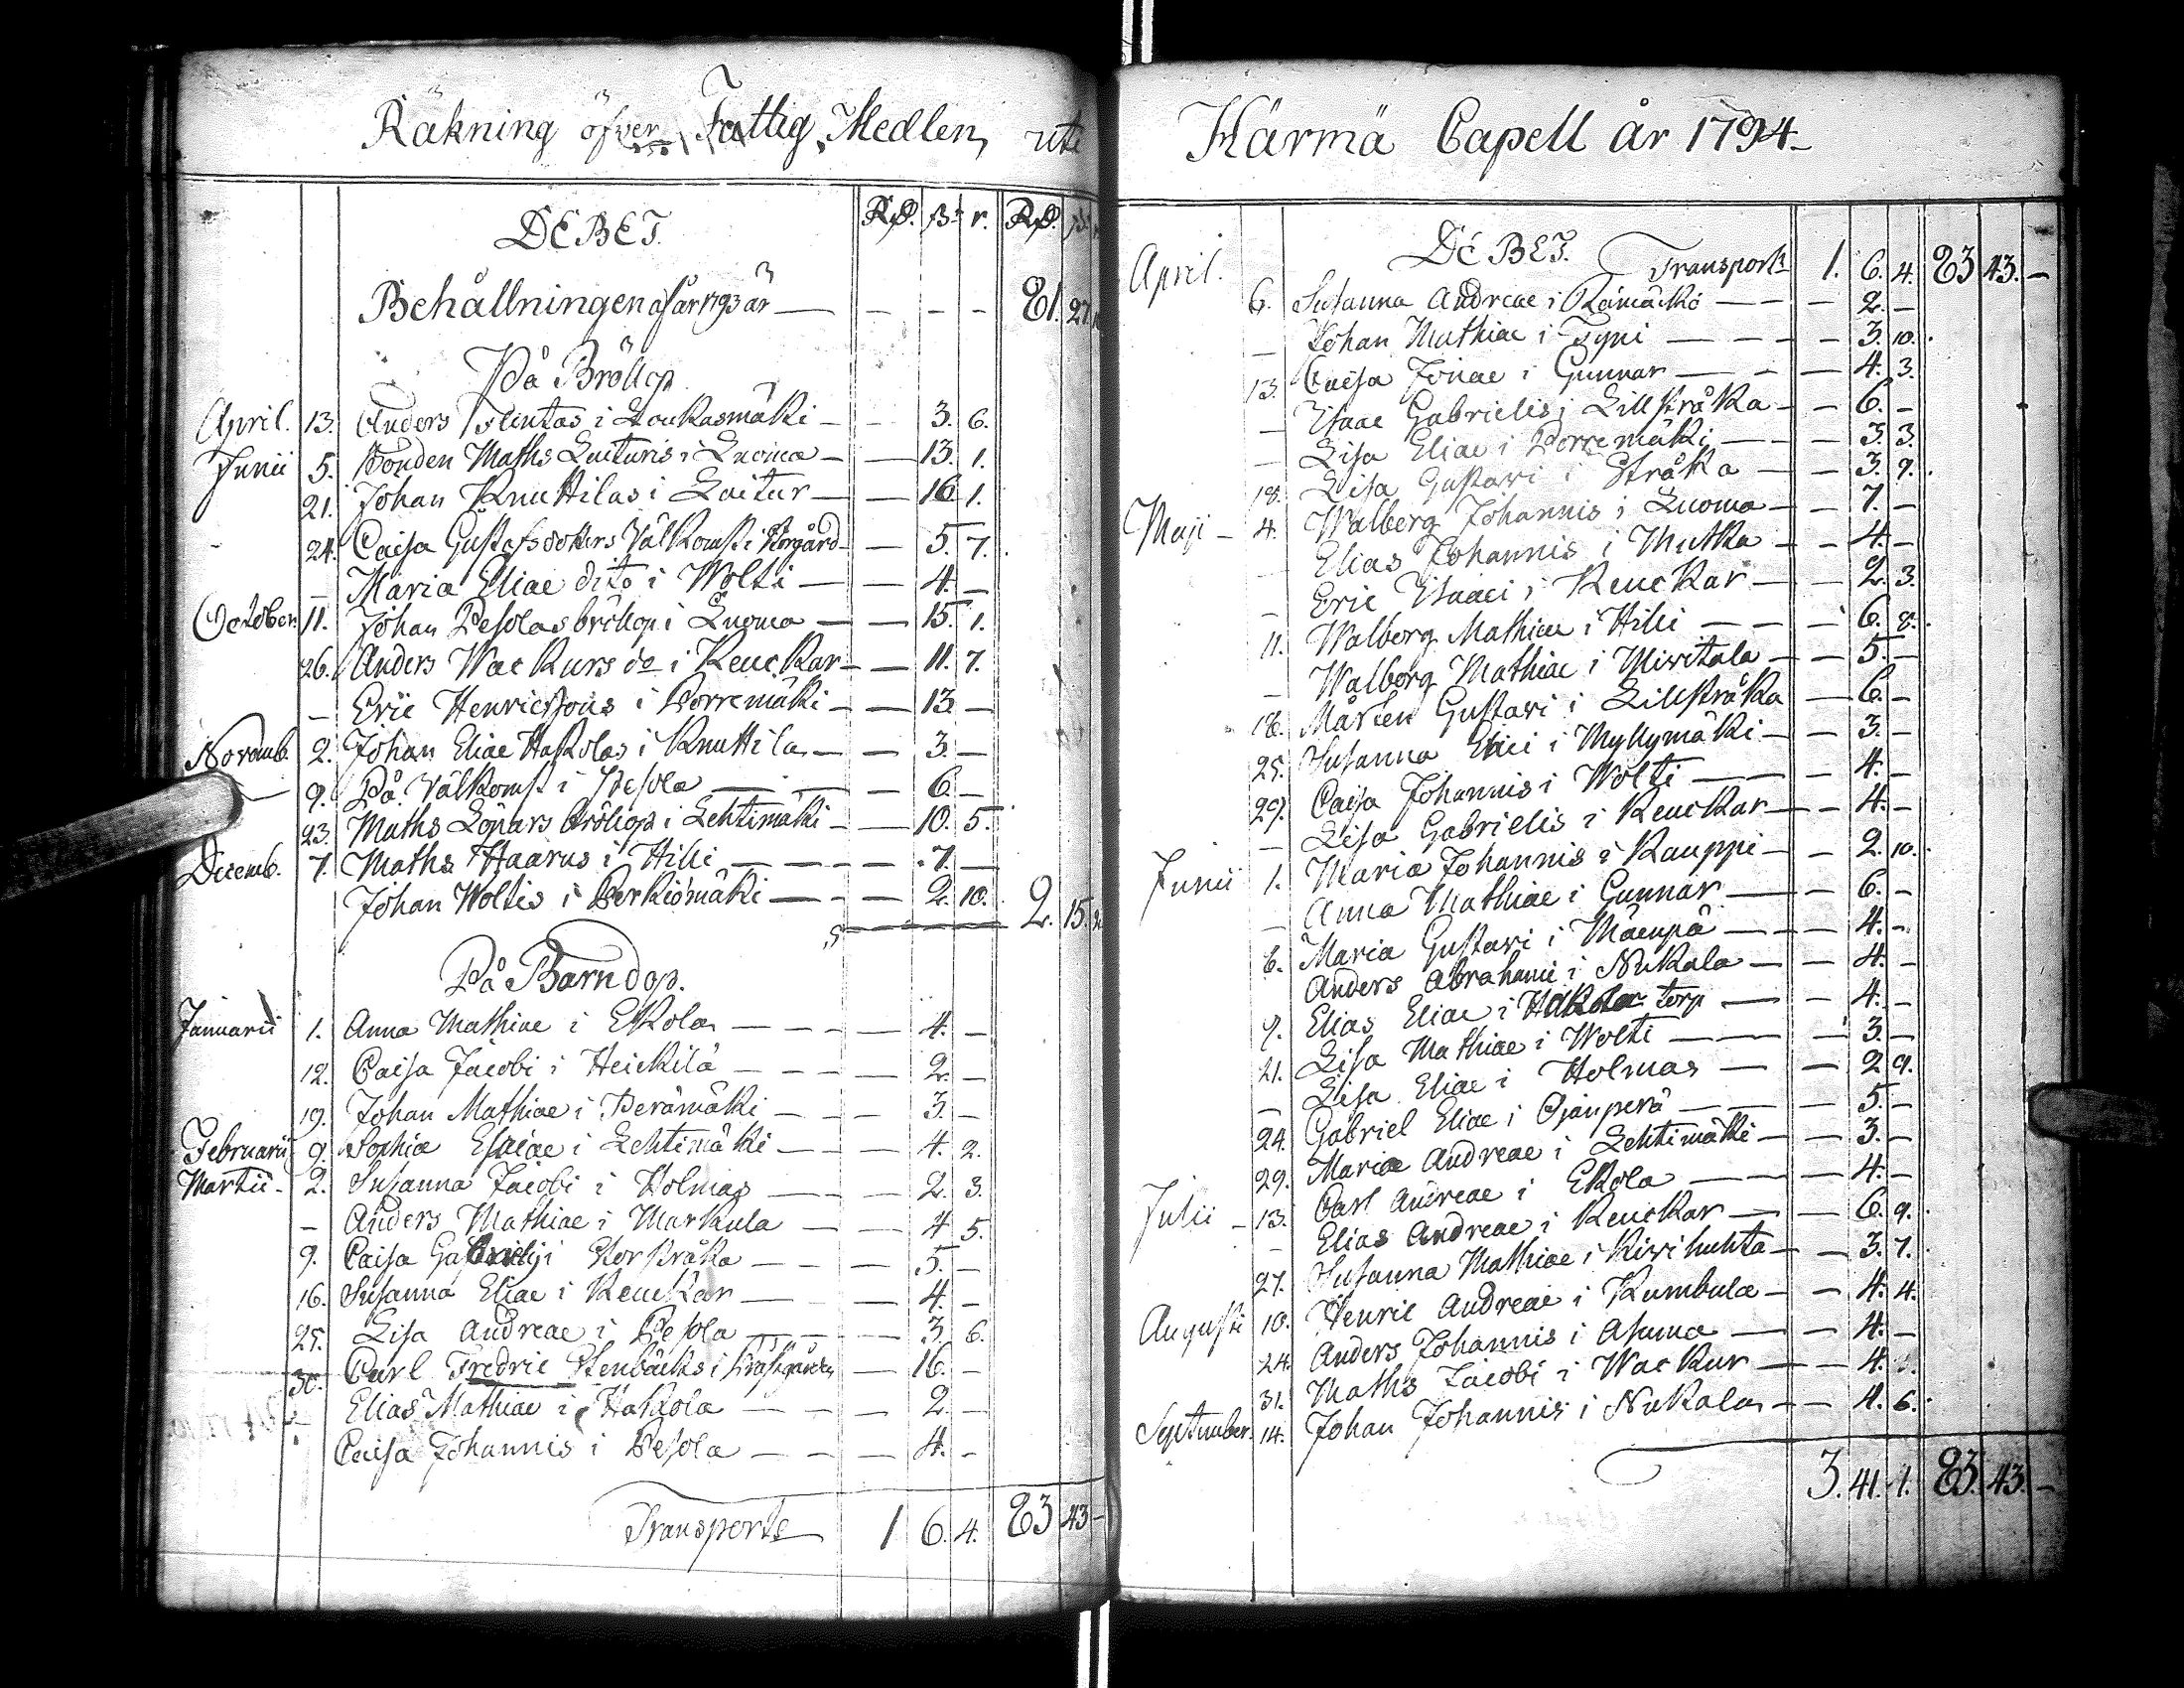 Räkning öfver Fattig Medlen uti
DEBET. Rd. ß. r. Rd. ß.
Behållningen af år 1793 är — — — — 81. 27.
På Bröllop
April. 13. Anders Flentas i Loukasmäki — — 3. 6.
Junii 5. Bonden Maths Luituris i Luoma — — 13. 1.
21. Johan Knuttilas i Luitur — — 16. 1.
24. Caisa Gustafsdotters Välkomst i Storgård — — 5. 7.
— Maria Eliae dito i Wolti — — 4. —
October. 11. Johan Pesolas bröllop i Luoma — — 15. 1.
26. Anders Wackurs do i Keuckar — — 11. 7.
— Eric Henricssons i Porremäki — — 13. —
Novemb. 2. Johan Eliae Hakolas i Knuttila — — 3. —
9. På Välkomst i Pesola — — 6. —
23. Maths Löpars bröllop i Lehtimäki — — 10. 5.
Decemb. 7. Maths Haarus i Hilli — — — 7. —
Johan Woltis i Perkiömäki — — — 2. 10. 2. 15.
På Barndop.
Januarii 1. Anna Mathiae i Ekola — — — 4. —
12. Caisa Jacobi i Heickilä — — — 2. —
19. Johan Mathiae i Perämäki — — — 3. —
Februarii 9. Sophia Esaiae i Lehtimäki — — — 4. 2.
Martii — 2. Susanna Jacobi i Holmas — — — 2. 3.
— Anders Mathiae i Markula — — 4. 5.
9. Caisa Gabrielis i Storstråka — — — 5. —
16. Susanna Eliae i Keuckar — — 4. —
25. Lisa Andreae i Pesola — — — 3. 6.
30. Carl Fredric Stenbäcks i Prästgården — 16. —
— Elias Mathiae i Hakola — — — 2. —
Caisa Johannis i Pesola — — — 4. —
Transporte 1 6. 4. 83 43 —
Härmä Capell år 1794 —
DEBET. Transport 1. 6. 4. 83 43. —
April. 6. Susanna Andreae i Rämäckö — — — 2. —
— Johan Mathiae i Tyni — — — — 3. 10.
13. Caisa Jonae i Gunnar — — — 4. 3.
— Isaac Gabrielis i Lillstråka — — 6. —
— Lisa Eliae i Porremäki — — 3. 3.
18. Lisa Gustavi i Stråka — — 3. 9.
Maji — 4. Walberg Johannis i Luoma — — 7. —
— Elias Johannis i Mutka — — 4. —
— Eric Isaaci i Keuckar — — 2. 3.
11. Walborg Mathiae i Hilli — — — 6. 8.
— Walborg Mathiae i Miritala — — 5. —
18. Mårten Gustavi i Lillstråka — 6. —
25. Susanna Erici i Myllymäki — — 3. —
29. Caisa Johannis i Wolti — — — 4. —
— Lisa Gabrielis i Keuckar — — 4. —
Junii 1. Maria Johannis i Kauppi — — 2. 10.
— Anna Mathiae i Gunnar — — 6. —
6. Maria Gustavi i Mäenpä — — — 4. —
Anders Abrahami i Nukala — — 4. —
9. Elias Eliae i Hakola torp — — 4. —
21. Lisa Mathiae i Wolti — — — 3. —
— Lisa Eliae i Holmas — — 2 9.
24. Gabriel Eliae i Ojanperä — — — 5. —
29. Maria Andreae i Lehtimäki — — 3. —
Julii — 13. Carl Andreae i Ekola — — — 4. —
— Elias Andreae i Keuckar — — 6. 9.
27. Susanna Mathiae i Kivihuhta — — 3. 7.
Augusti 10. Henric Andreae i Kumbula — — 4. 4.
24. Anders Johannis i Asuma — — 4. —
31. Maths Jacobi i Wackur — — 4.
September. 14. Johan Johannis i Nukala — — 4. 6.
3. 41. 1. 83. 43. —